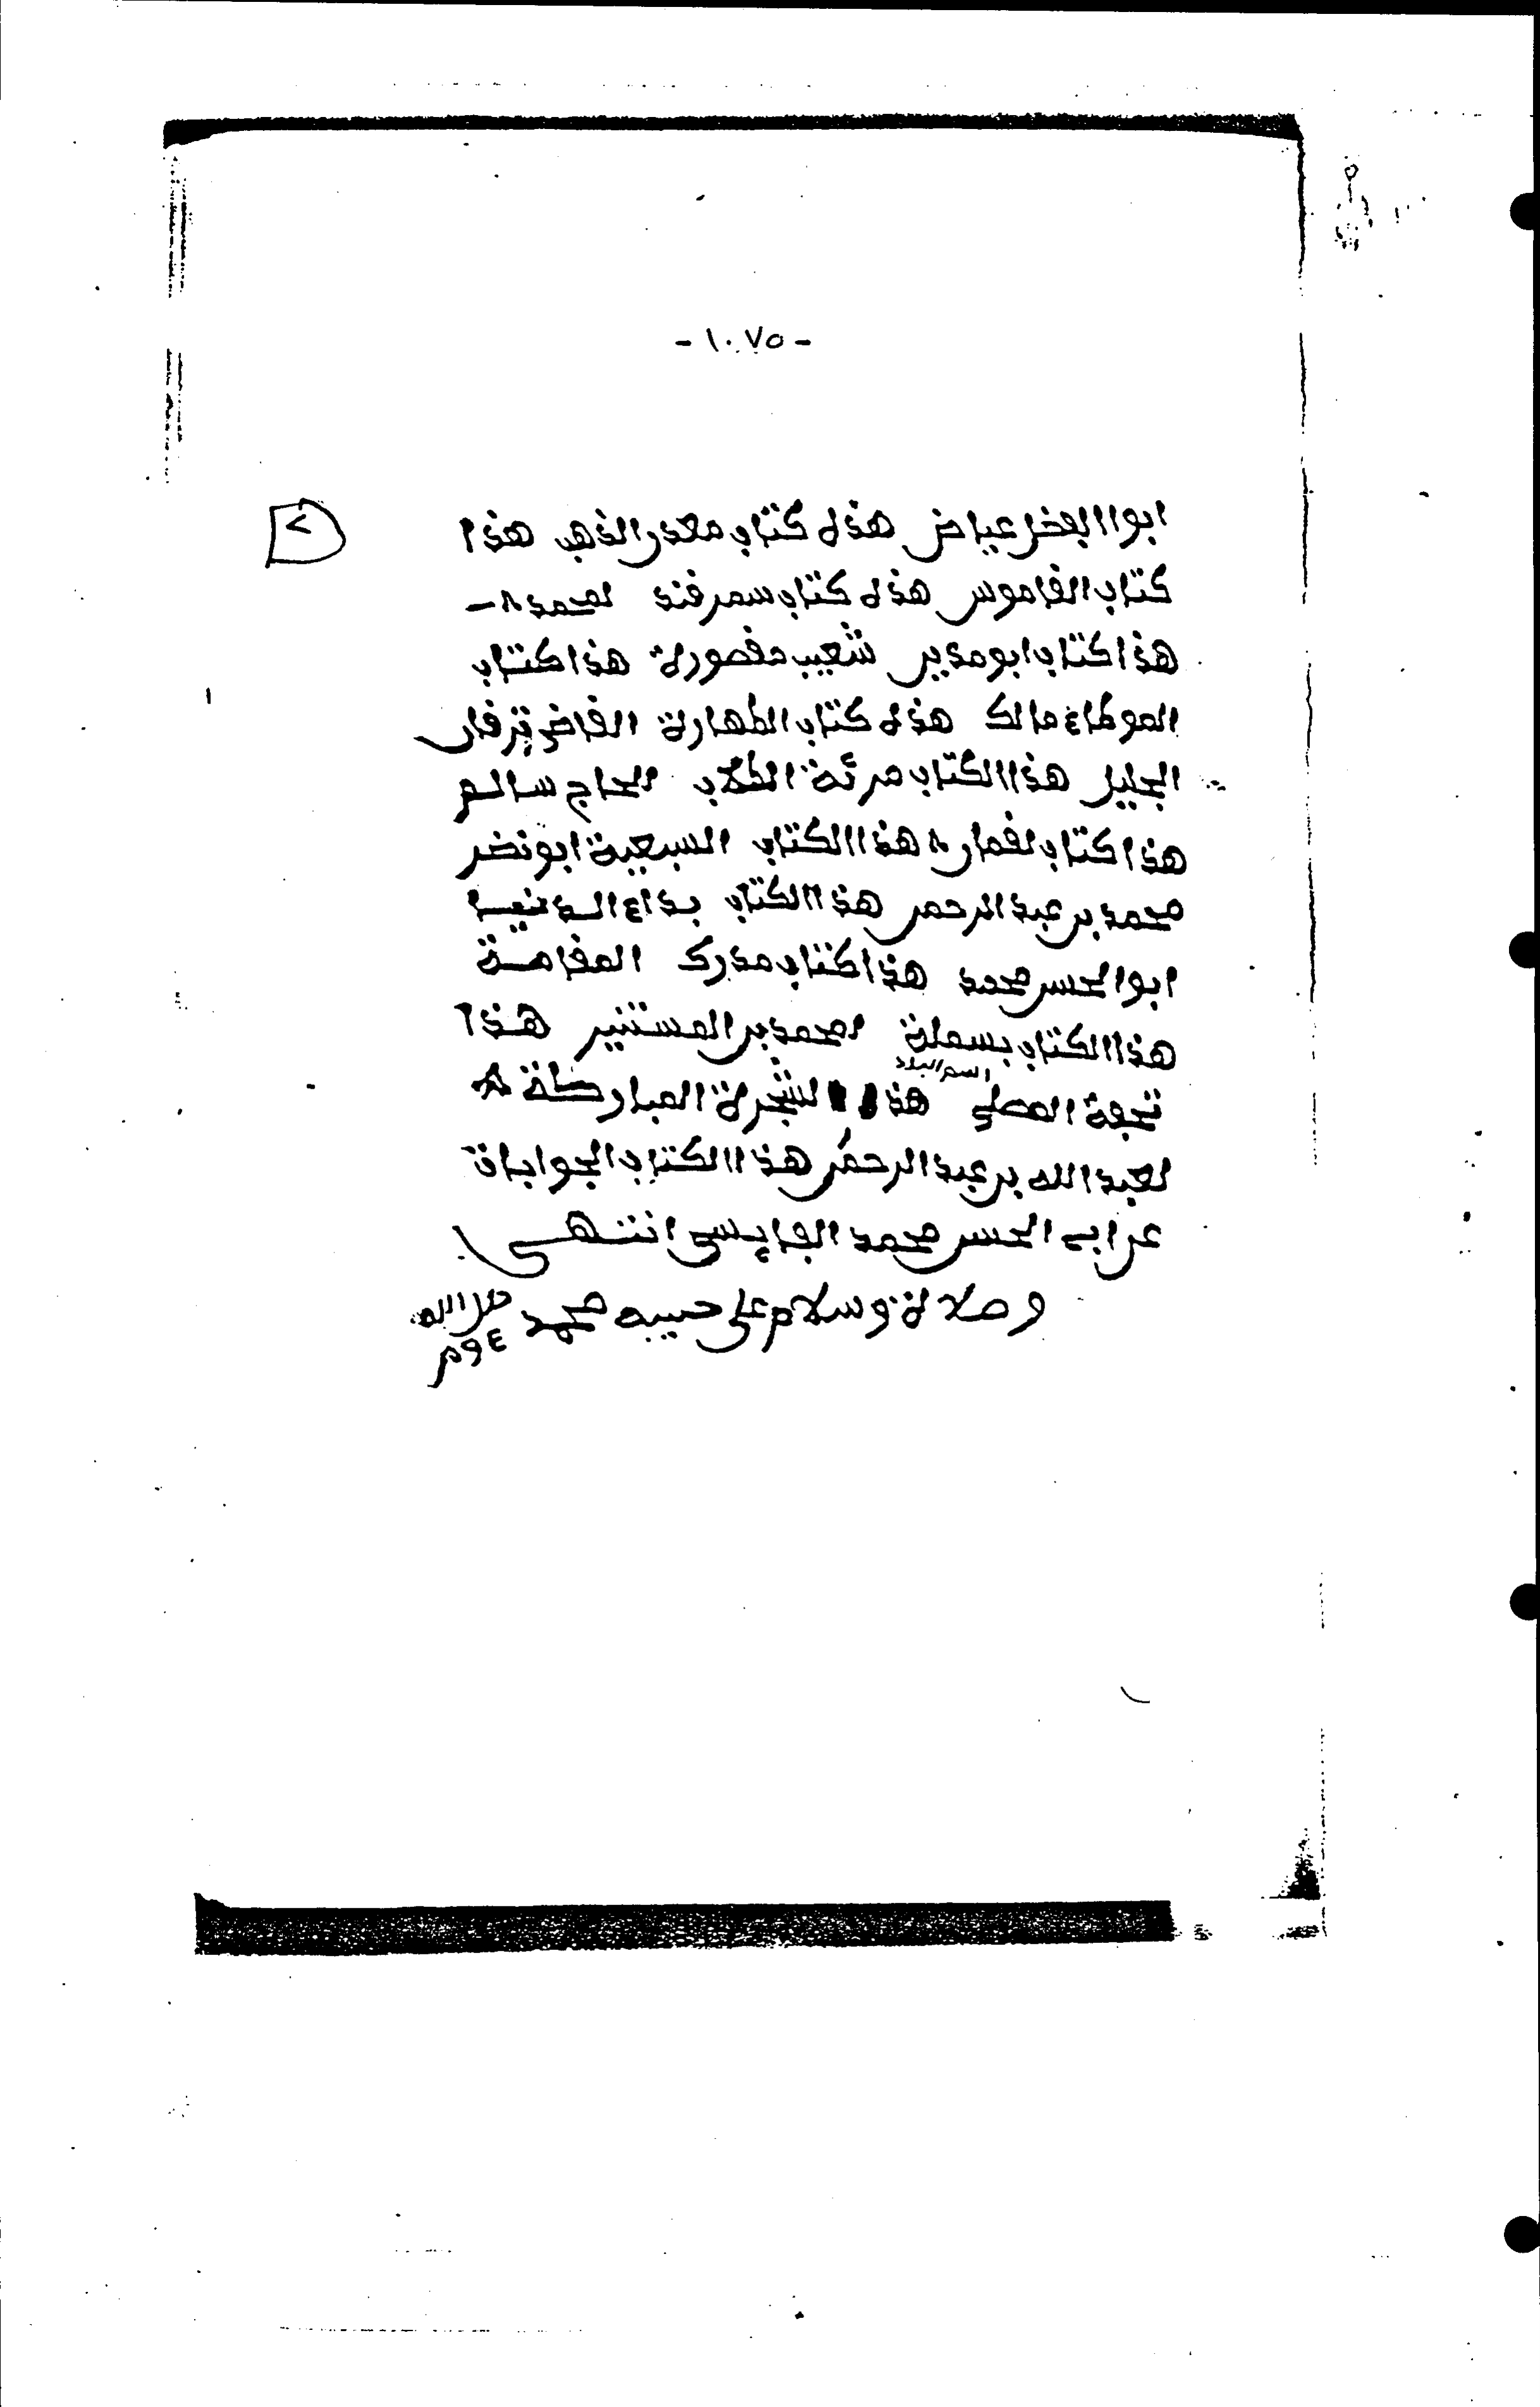 - ١٠٧٥ -
ابوا الفضل عياض هذه كتاب معدن الذهب هذا
٢
كتاب القاموس هذه كتاب سمرقند لمحمد
هذا كتاب ابو مدين شعيب مقصورة هذا كتاب
الموطاء مالك هذه كتاب الطهارة القاض
الجليل هذا الكتاب مرئة الطلاب الحاج سالم
هذا كتاب لقمان هذا الكتاب السبعية ابو نضر
محمد بن عبد الرحمن هذا الكتاب بداء الدنيا
ابوا الحسن محمد هذا كتاب مدرك المقامة
هذا الكتاب بسملة لمحمد بن المستنير هذا
اسم البلاد
تحفة المصلي هذا الشجرة المباركة
لعبد الله بن عبد الرحمن هذا الكتاب الجوابات
عن ابي الحسن محمد القابسي انتهى
وصلاة وسلام على حبيبه محمد صلى الله
ع و م